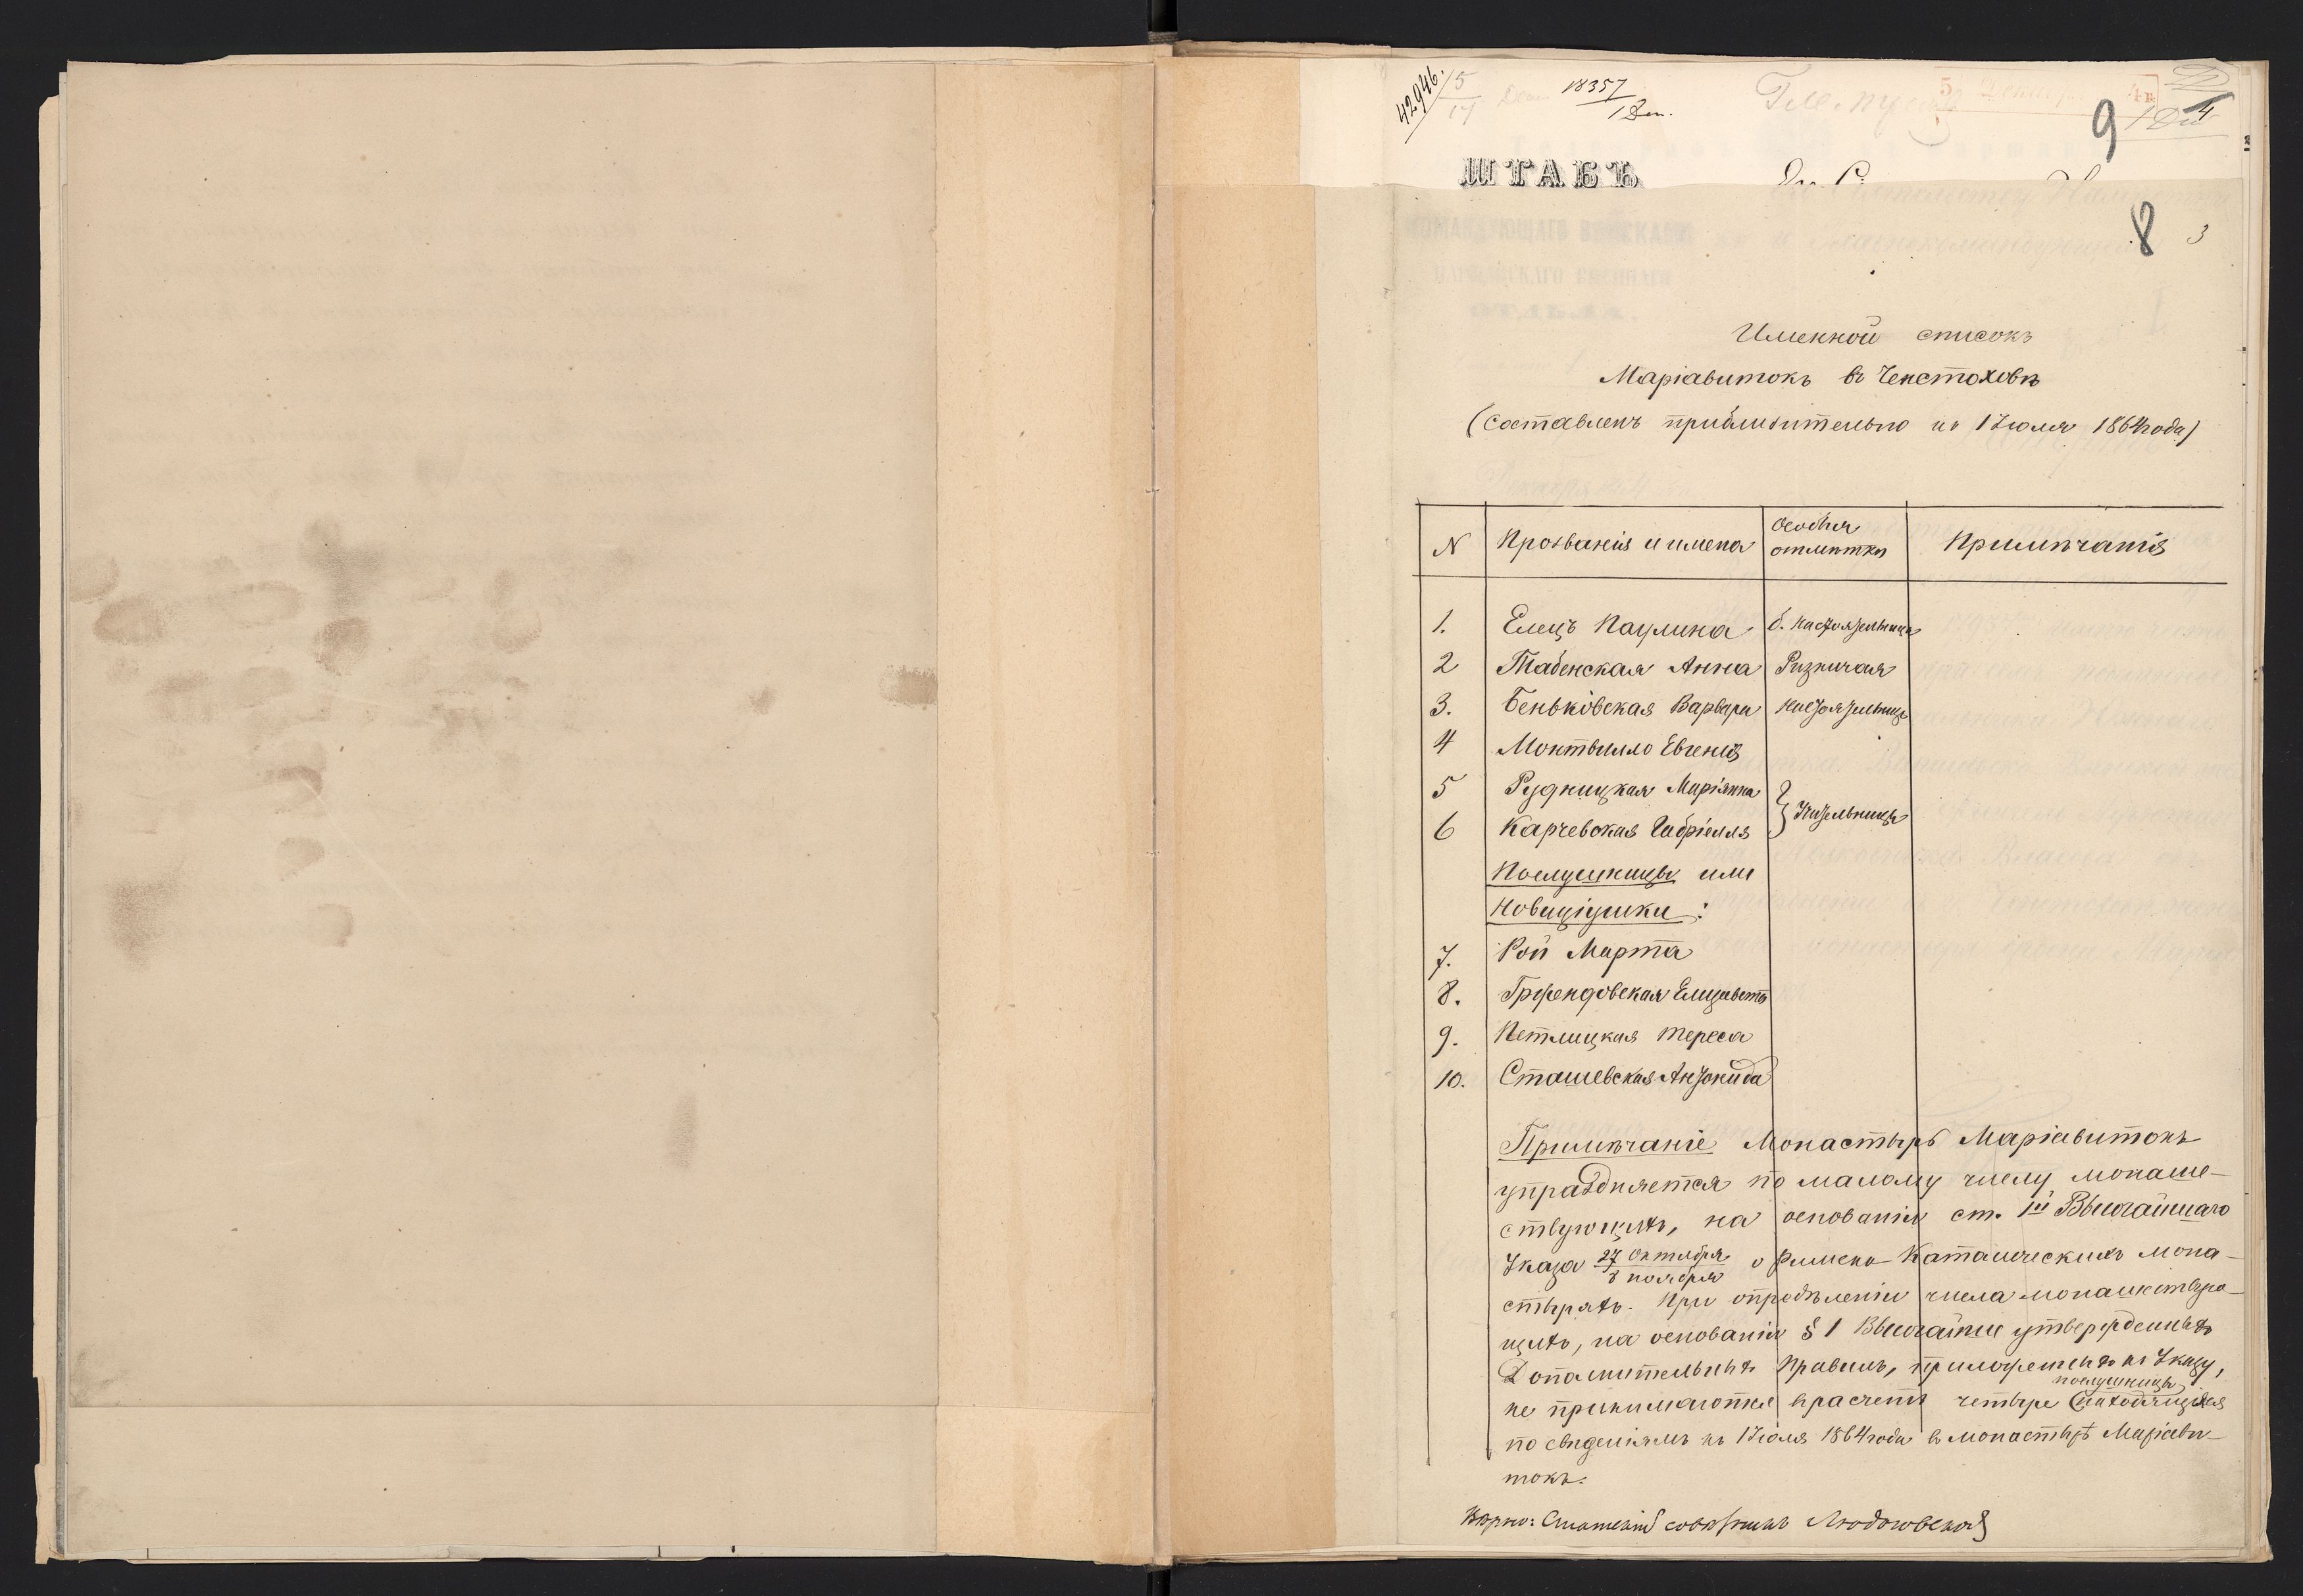 42946.
18357
1 Дек.
9
4
ШТАБЪ
8 3
Именной списокъ
Маріавитокъ въ Ченстоховѣ
(составленъ приблизительно къ 1 Іюля 1864 года)
N Прозванія и имена Особыя отмѣтки Примѣчанія
1. Елецъ Паулина б. настоятельница
2 Табенская Анна Ризничая
3. Беньковская Варвара настоятельница
4 Монтвилло Евгенія
5 Рудницкая Маріанна
6 Карчевская Габріелля } Учительницы
Послушницы или
Новиціушки:
7. Рой Марта
8. Гржендовская Елизавета
9. Петлицкая Тереса
10. Сташевская Антонида
Примѣчаніе Монастырь Маріавитокъ
упраздняется по малому числу монаше-
ствующихъ, на основаніи ст. 1й Высочайшаго
Указа 27 Октября / 8 ноября о Римско-Католическихъ мона-
стыряхъ. При опредѣленіи числа монашествую-
щихъ, на основаніи § 1 Высочайше утвержденныхъ
Дополнительныхъ правилъ, приложенныхъ къ Указу,
не принимаются въ расчетъ четыре послушницы находящіяся
по свѣденіямъ къ 1 Іюля 1864 года въ монастырѣ Маріави-
токъ.
Вѣрно: Статскій совѣтникъ